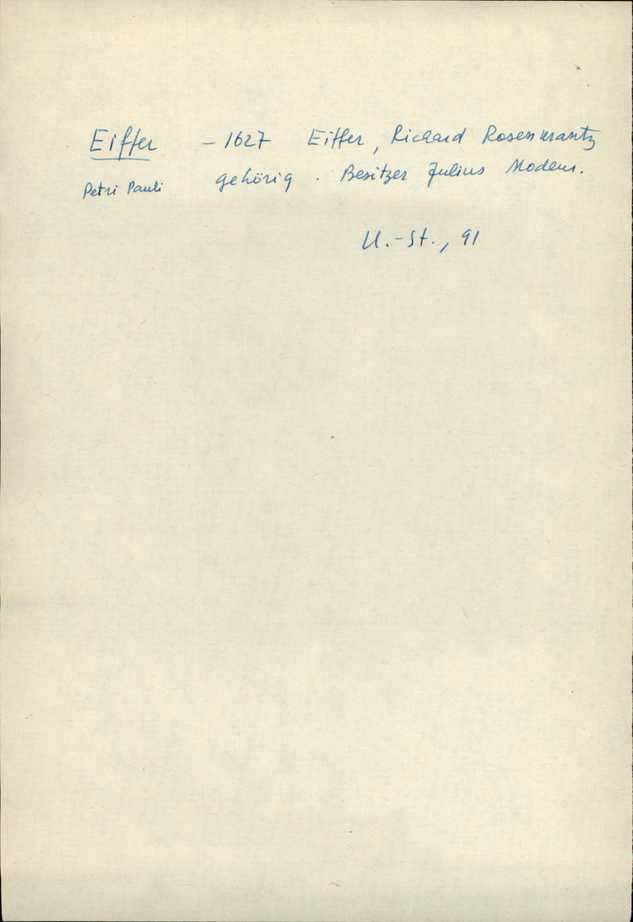 Eiffer – 1627 Eiffer, Richard Rosenkrantz
Petri Pauli gehörig. Besitzer Julius Modem.
U.-St., 91